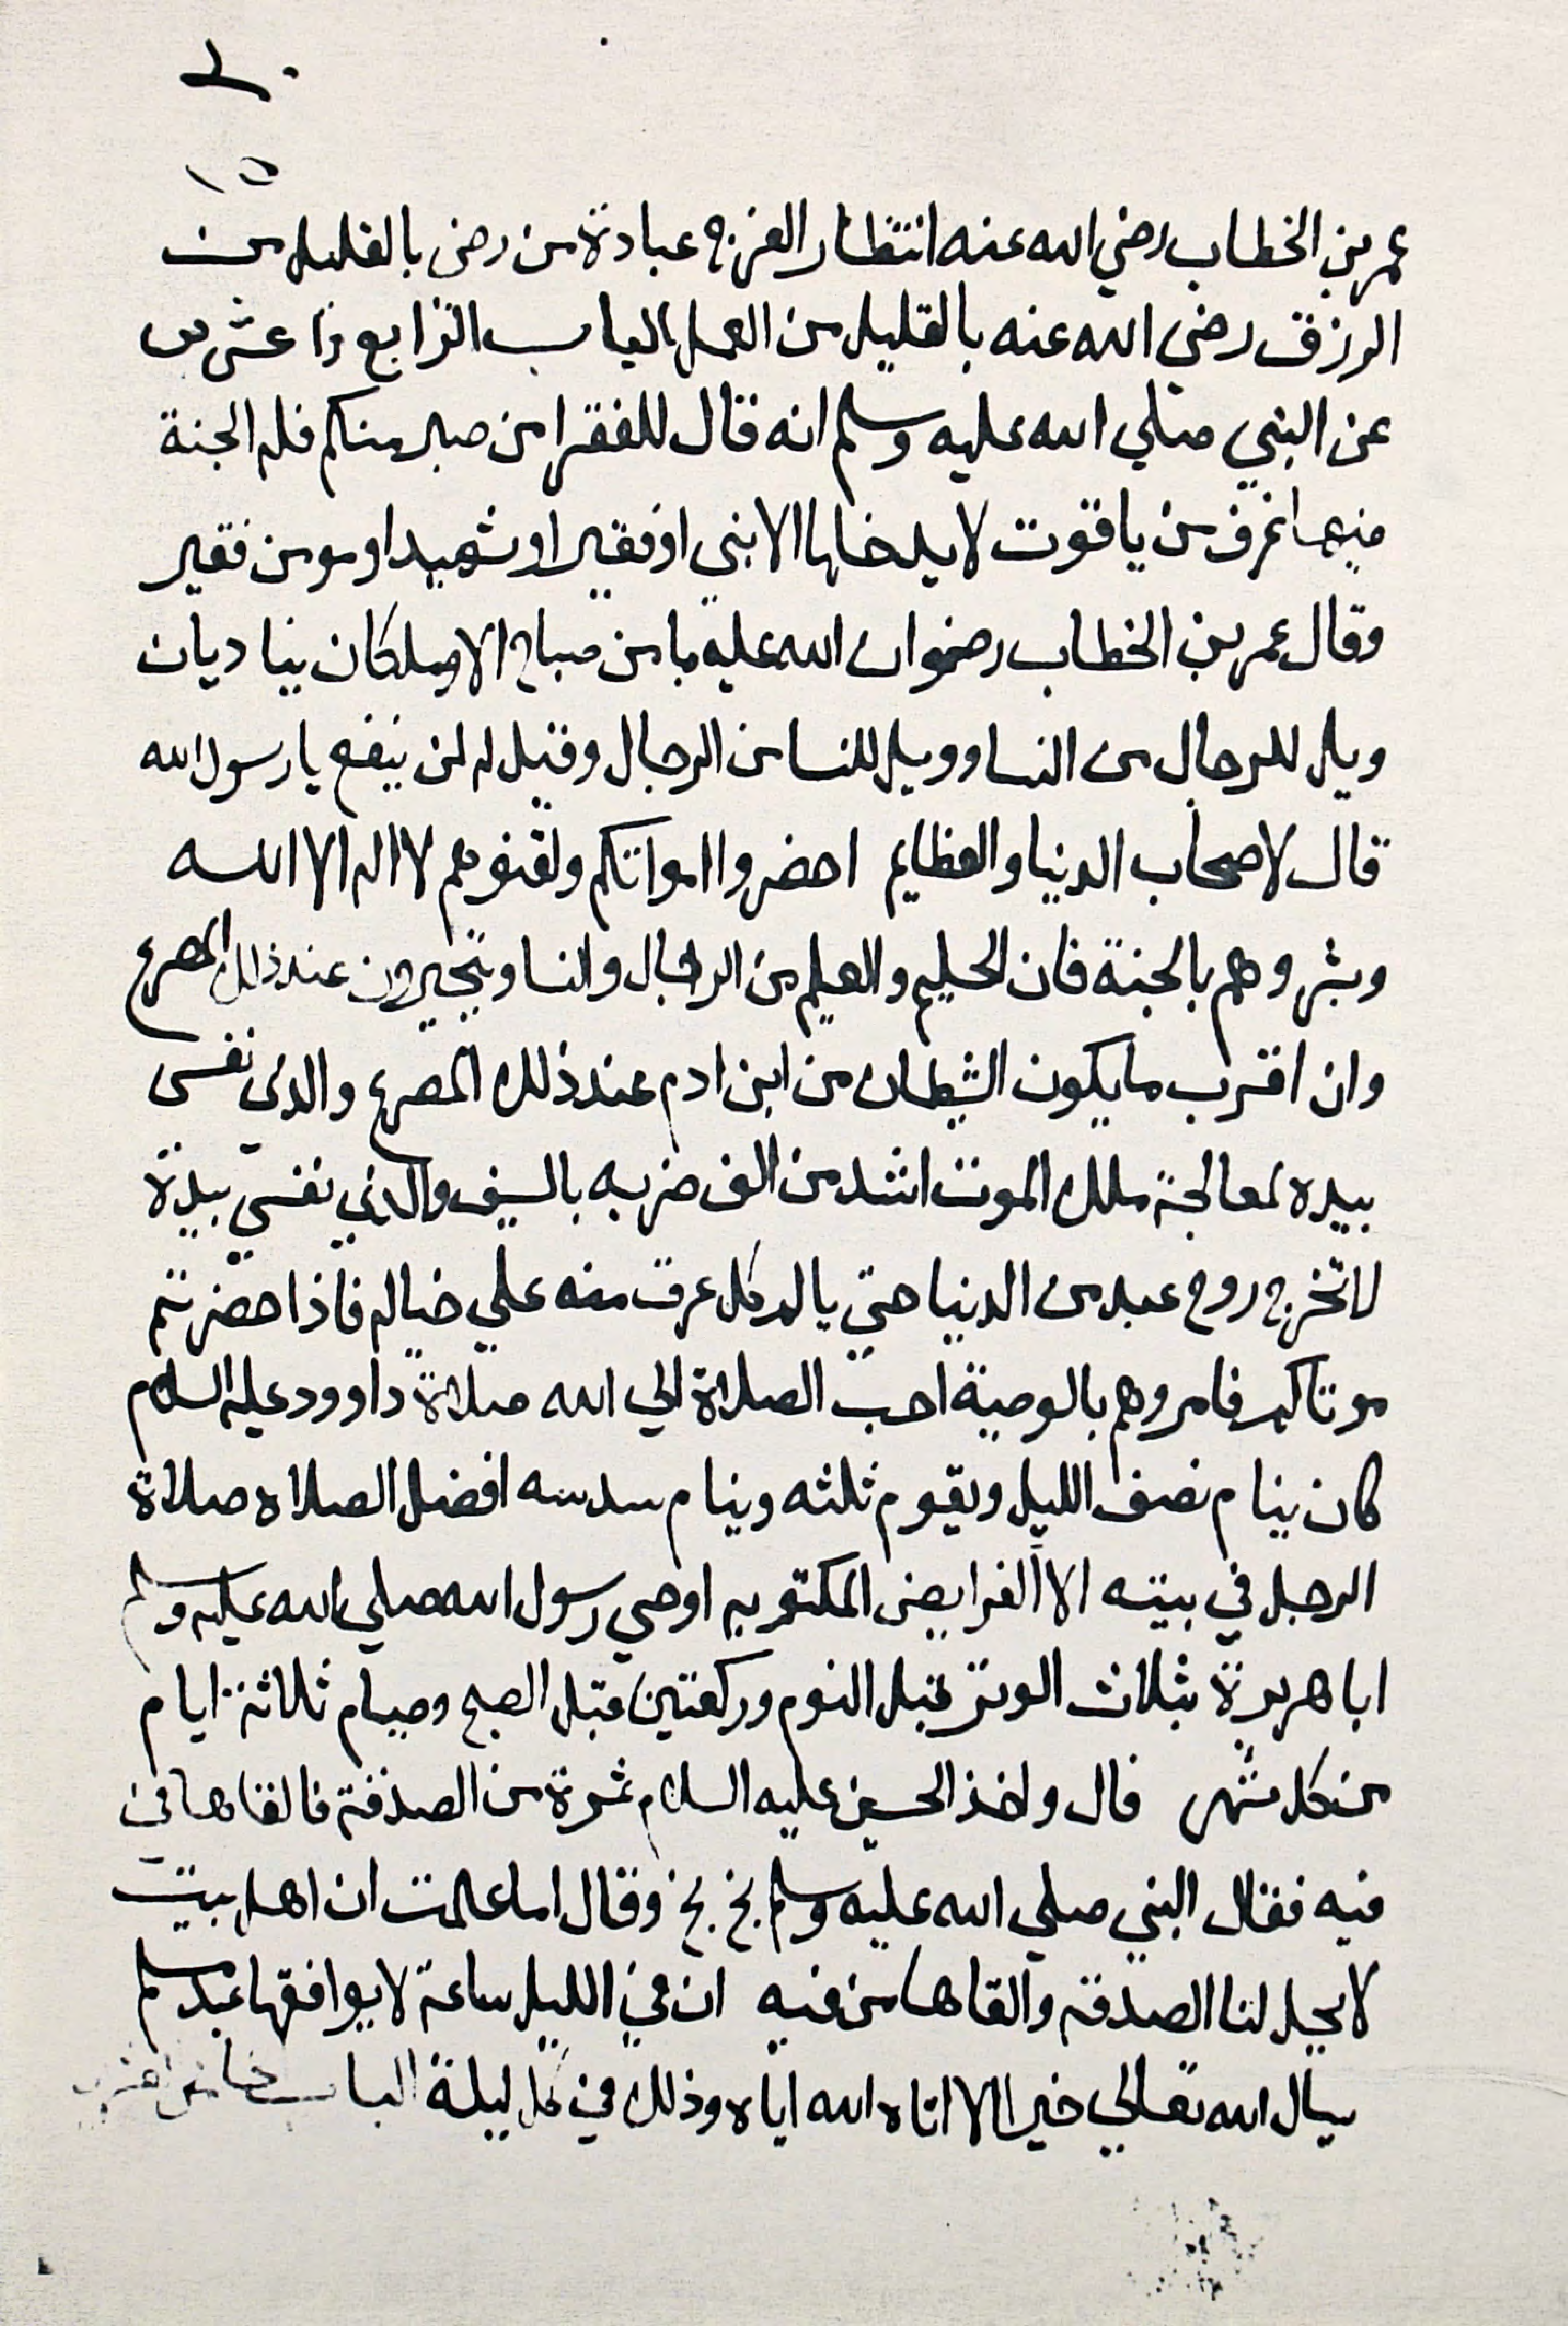 ١٥
عمر بن الخطاب رضي الله عنه انتظار الفرج عبادة من رضى بالقليل من
الرزق رضى الله عنه بالقليل من العمل الباب الرابع عشر
عن النبي صلي الله عليه وسلم انه قال للفقرا من صبر منكم فله الجنة
فيها غرف من ياقوت لا يدخلها الا نبي او فقير او شهيد او مومن فقير
وقال عمر بن الخطاب رضوان الله عليه ما من صباح الا وملكان يناديان
ويل للرجال من النسا وويل للنسا من الرجال وقيل له لمن ينفع يا رسول الله
قال لاصحاب الدنيا والعظايم احضروا امواتكم ولقنوهم لا اله الا الله
وبشروهم بالجنة فان الحليم والعليم من الرجال والنسا ويتحيرون عند ذلك المصرع
وان اقرب ما يكون الشيطان من ابن ادم عند ذلك المصرع والذي نفسى
بيده لمعالجة ملك الموت اشد من الف ضربه بالسيف والذي نفسي بيدة
لا تخرج روح عبد من الدنيا حتي يالم كل عرق منه علي حياله فاذا حضرتم
موتاكم فامروهم بالوصية احب الصلاة الي الله صلاة داوود عليه السلام
كان ينام نصف الليل ويقوم ثلثه وينام سدسه افضل الصلاه صلاة
الرجل في بيته الا الفرايض المكتوبه اوصي رسول الله صلي الله عليه وسلم
ابا هريرة بثلاث الوتر قبل النوم وركعتين قبل الصبح وصيام ثلاثة ايام
من كل شهر قال واخذ الحسين عليه السلام تمرة من الصدقة فالقاها في
فيه فقال النبي صلي الله عليه وسلم بخ بخ وقال اما علمت ان اهل بيت
لا يحل لنا الصدقه والقاها من فيه ان في الليل ساعة لا يوافقها عبد مسلم
يسال الله تعالي خيرا الا اتاه الله اياه وذلك في كل ليلة الباب